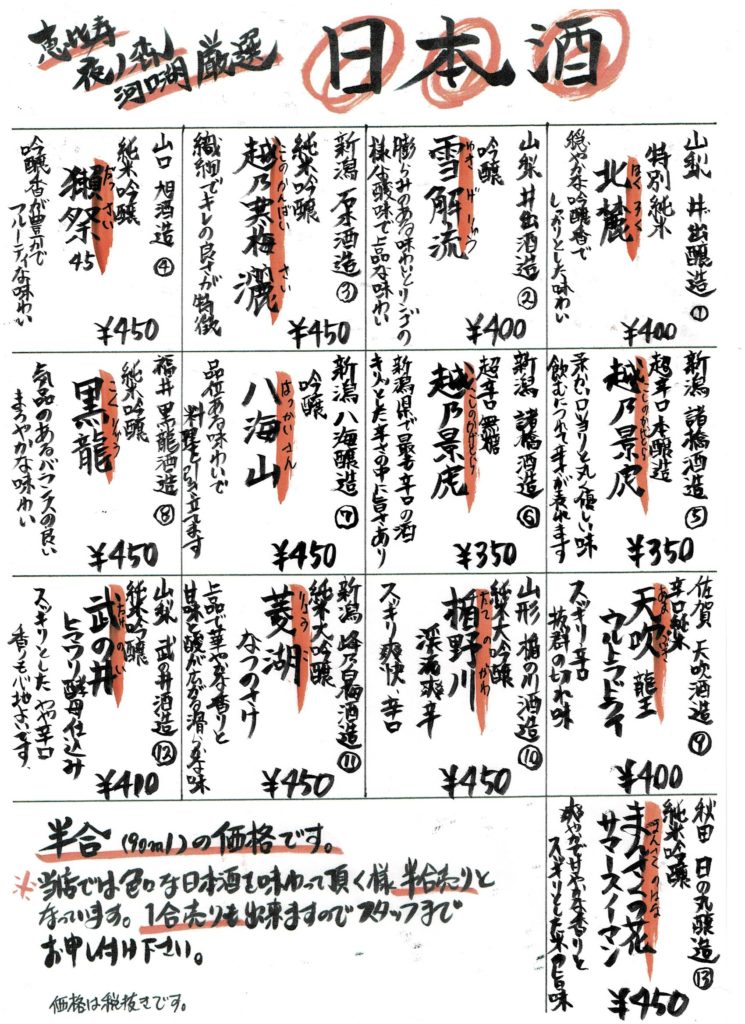 恵比寿
夜ノ森
河口湖 厳選
日本酒
山梨 井出醸造 ①
特別純米
北麓
ほくろく
穏やかな吟醸香で
しっかりとした味わい
¥400
山梨 井出醸造 ②
吟醸
雪解流
ゆきげりゅう
膨らみのある味わいとリンゴの
様な酸味で上品な味わい
¥400
新潟 石本酒造 ③
純米吟醸
越乃寒梅 灑
こしのかんばい さい
繊細でキレの良さが特徴
¥450
山口 旭酒造 ④
純米吟醸
獺祭 45
だっさい
吟醸香が豊かで
フルーティな味わい
¥450
新潟 諸橋酒造 ⑤
超辛口本醸造
越乃景虎
こしのかげとら
柔かい口当りと丸く優しい味
飲むにつれて辛さが表れます
¥350
新潟 諸橋酒造 ⑥
超辛口 無糖
越乃景虎
こしのかげとら
新潟県で最も辛口の酒
キリッとした辛さの中に旨さあり
¥350
新潟 八海醸造 ⑦
吟醸
八海山
はっかいさん
品位ある味わいで
料理を引き立てます
¥450
福井 黒龍酒造 ⑧
純米吟醸
黒龍
こくりゅう
気品のあるバランスの良い
まろやかな味わい
¥450
佐賀 天吹酒造 ⑨
辛口純米
天吹 龍王
あまぶき
ウルトラドライ
スッキリ辛口
抜群の切れ味
¥400
山形 楯の川酒造 ⑩
純米大吟醸
楯野川
たてのがわ
渓流爽辛
スッキリ爽快、辛口
¥450
新潟 峰乃白梅酒造 ⑪
純米大吟醸
菱湖
りょうこ
なつのさけ
上品で華やかな香りと
甘味と酸が広がる滑らかな味
¥450
山梨 武の井酒造 ⑫
純米吟醸
武の井
たけのい
ヒマワリ酵母仕込み
スッキリとした やや辛口
香りも心地よいです。
¥400
秋田 日の丸醸造 ⑬
純米吟醸
まんさくの花
まんさくのはな
サマースイーマン
爽やかで甘やかな香りと
スッキリとした米の旨味
¥450
半合 (90ml)の価格です。
※当店では色々な日本酒を味わって頂く様、半合売りと
なっています。1合売りも出来ますのでスタッフまで
お申し付け下さい。
価格は税抜きです。